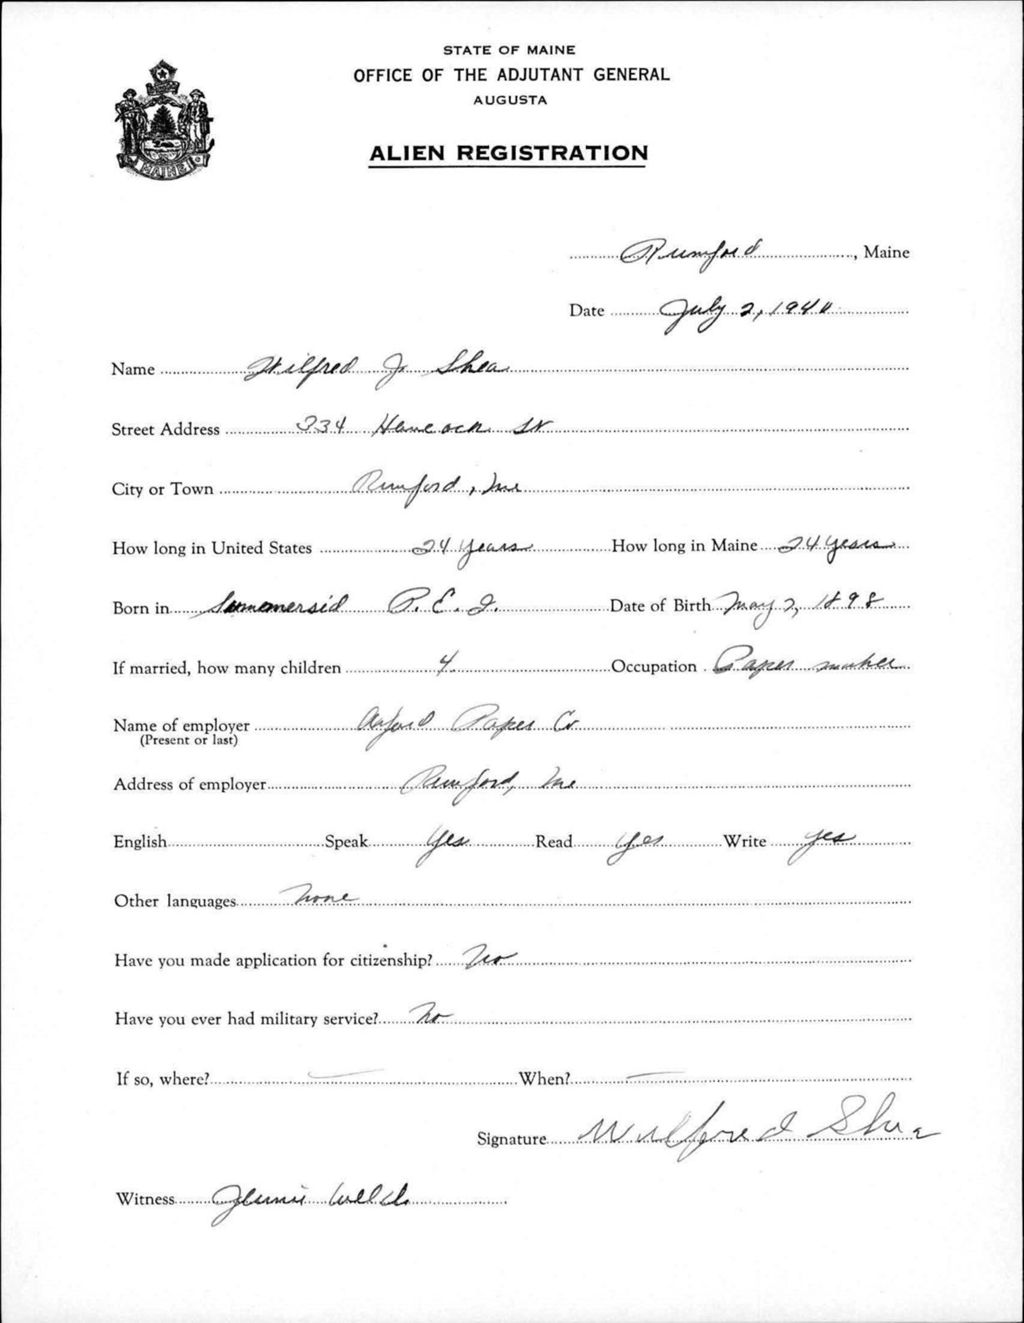 STATE OF MAINE
OFFICE OF THE ADJUTANT GENERAL
AUGUSTA
MAINE
ALIEN REGISTRATION
Rumford, Maine
Date July 2, 1940
Name Wilfred J. Shea
Street Address 334 Hancock St
City or Town Rumford, Me
How long in United States 24 years How long in Maine 24 years
Born in Summersid P. E. I. Date of Birth May 2, 1898
If married, how many children 4 Occupation Paper maker
Name of employer Oxford Paper Co
(Present or last)
Address of employer Rumford, Me
English Speak Yes Read yes Write yes
Other languages None
Have you made application for citizenship? No
Have you ever had military service? No
If so, where? — When? —
Signature Wilfred Shea
Witness Jennie Welch